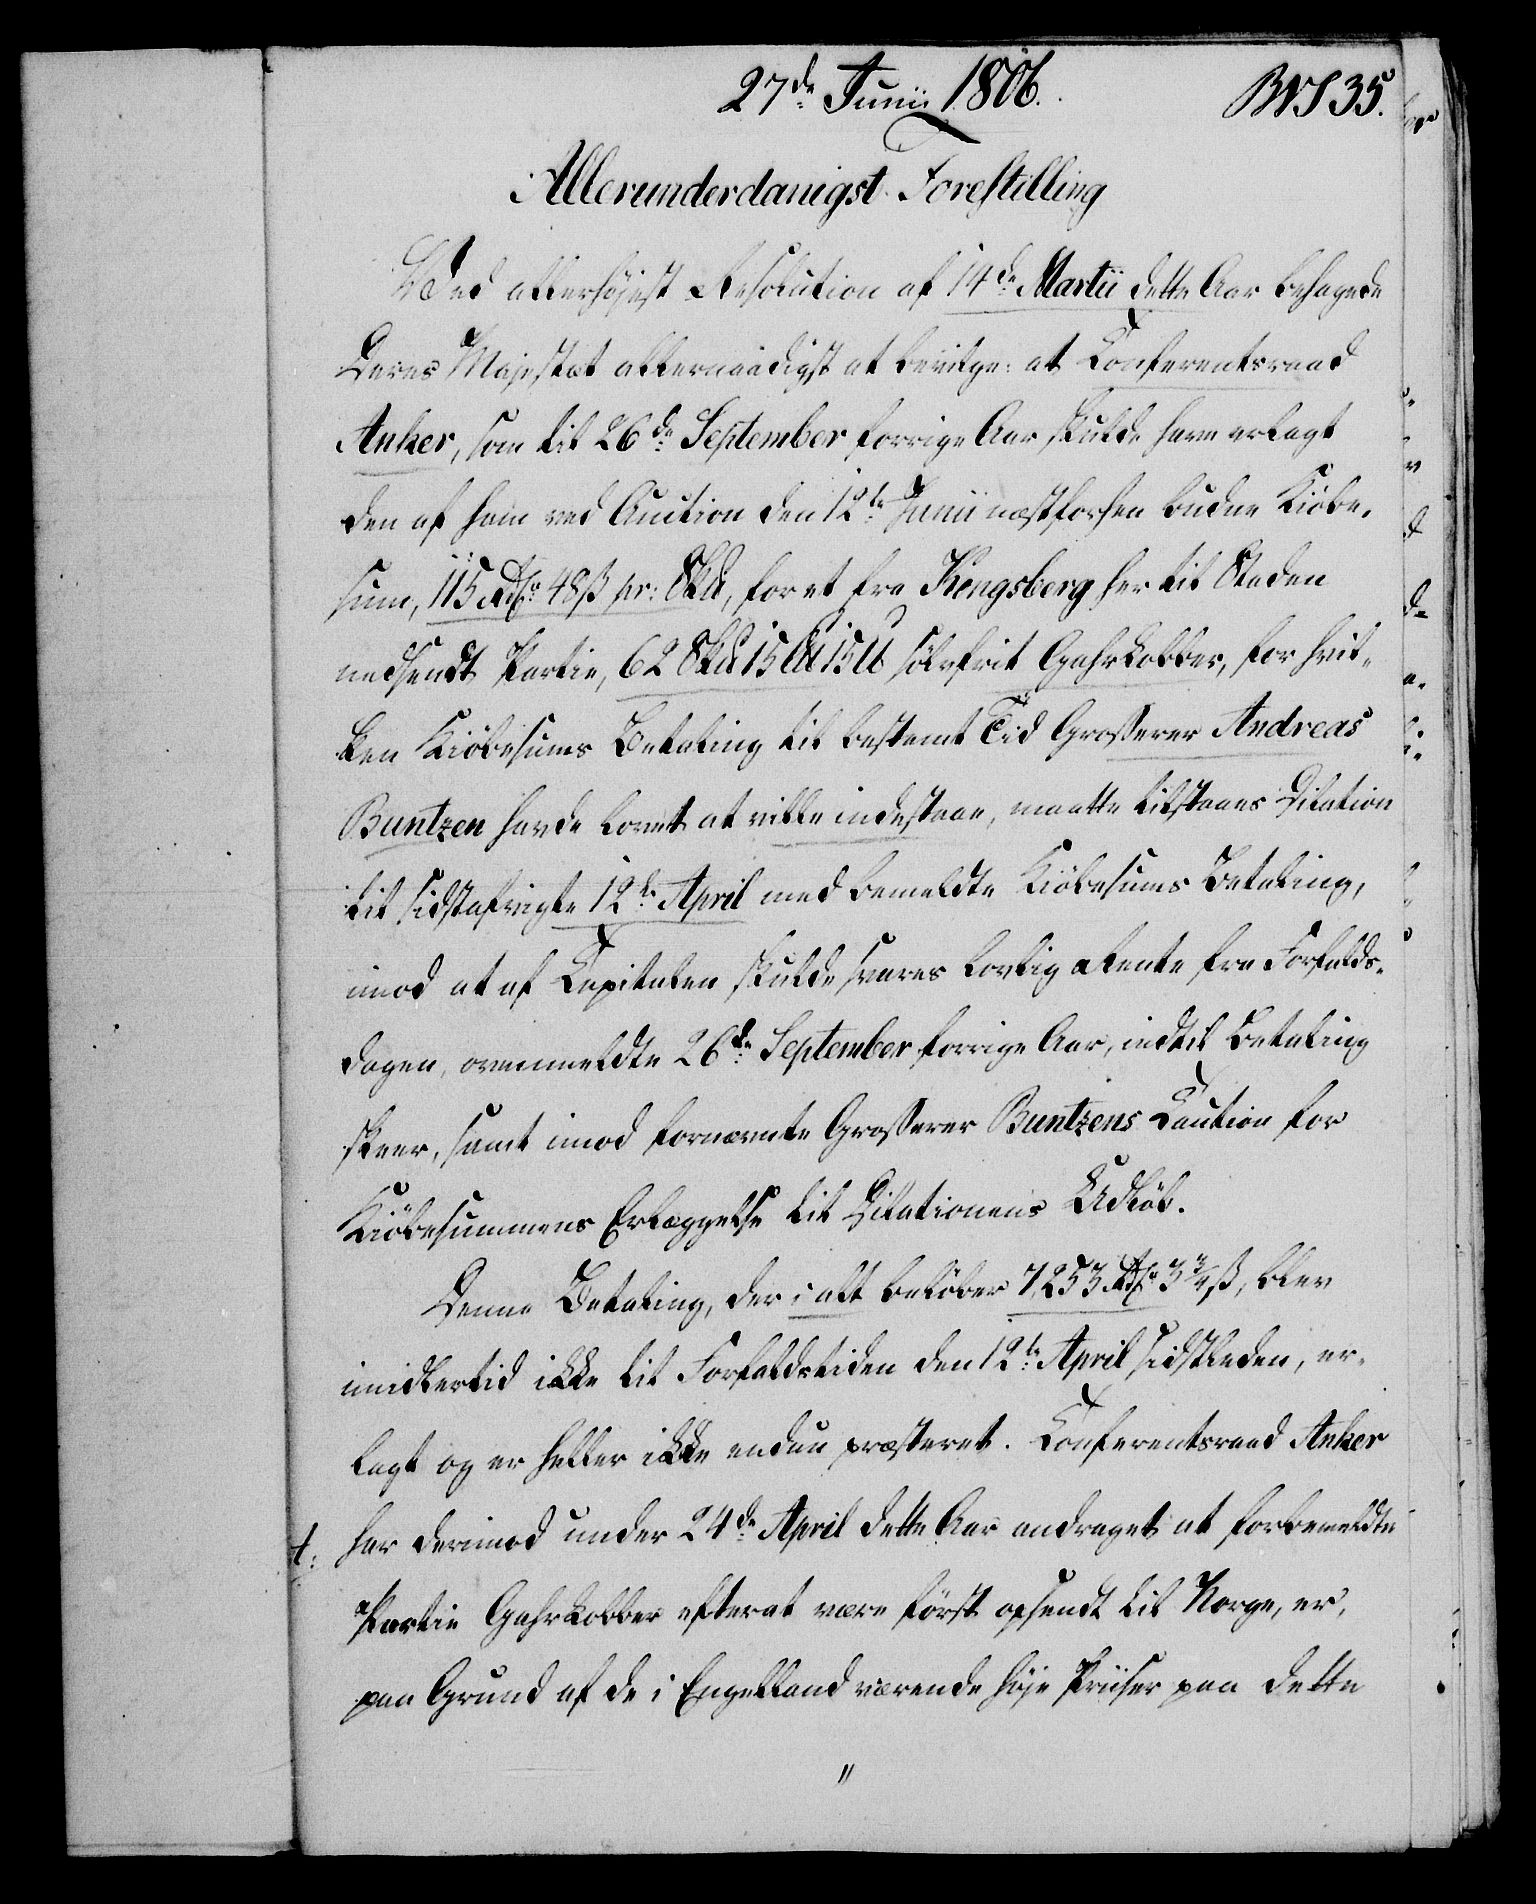 27de Junii 1806.
Allerunderdanigst Forestilling
Ved allerhöjest Resolution af 14de Martii dette Aar behagede
Deres Majestæt allernaadigst at bevilge: at Conferentsraad
Anker, som til 26de September forrige Aar skulde have erlagt
den af ham ved Auction den 12te Junii næstforhen budne Kiöbe-
sum, 115 Rdr 48 ß pr: SkU, for et fra Kongsberg her til Staden
nedsendt Partie, 62 SkU 15 LU 15 U sölvfrit GahrKobber, for hvil-
ken Kiöbesums Betaling til bestemt Tid Grosserer Andreas
Buntzen havde lovet at ville indestaae, maatte tilstaaes Dilation
til sidstafvigte 12te April med bemeldte Kiöbesums Betaling,
imod at af Capitalen skulde svares lovlig Rente fra Forfalds-
dagen, ovenmeldte 26de September forrige Aar, indtil Betaling
skeer, samt imod fornævnte Grosserer Buntzens Caution for
Kiöbesummens Erlæggelse til Dilationens Udlöb.
Denne Betaling, der i alt belöber 7,253 Rdr 3 3/4 ß, blev
imidlertid ikke til Forfaldstiden den 12te April sidstleden, er-
lagt og er heller ikke endnu præsteret. Conferentsraad Anker
har derimod under 24de April dette Aar andraget at forbemeldte
Partie GahrKobber efterat være först opsendt til Norge, er,
paa Grund af de i Engelland værende höje Priiser paa dette
"